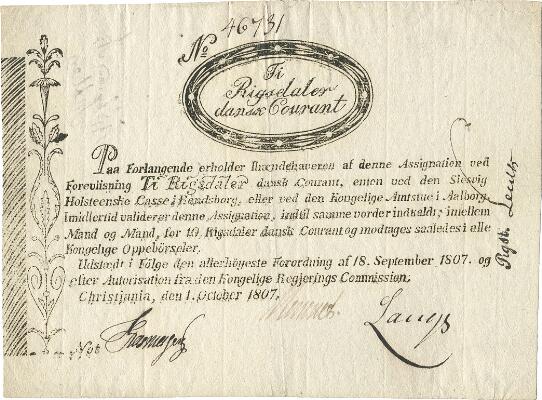 No 46731
Ti
Rigsdaler
dansk Courant
Paa Forlangende erholder Ihændehaveren af denne Assignation ved
Foreviisning Ti Rigsdaler dansk Courant, enten ved den Slesvig
Holsteenske Casse i Rendsborg, eller ved den Kongelige Amtstue i Aalborg,
imidlertid validerer denne Assignation, indtil samme vorder indkaldt; imellem
Mand og Mand, for 10 Rigsdaler dansk Courant og modtages saaledes i alle
Kongelige Oppebörseler.
Udstædt i Fölge den allerhöieste Forordning af 18. September 1807. og
efter Autorisation fra den Kongelige Regjerings Commission.
Christiania, den 1. October 1807.